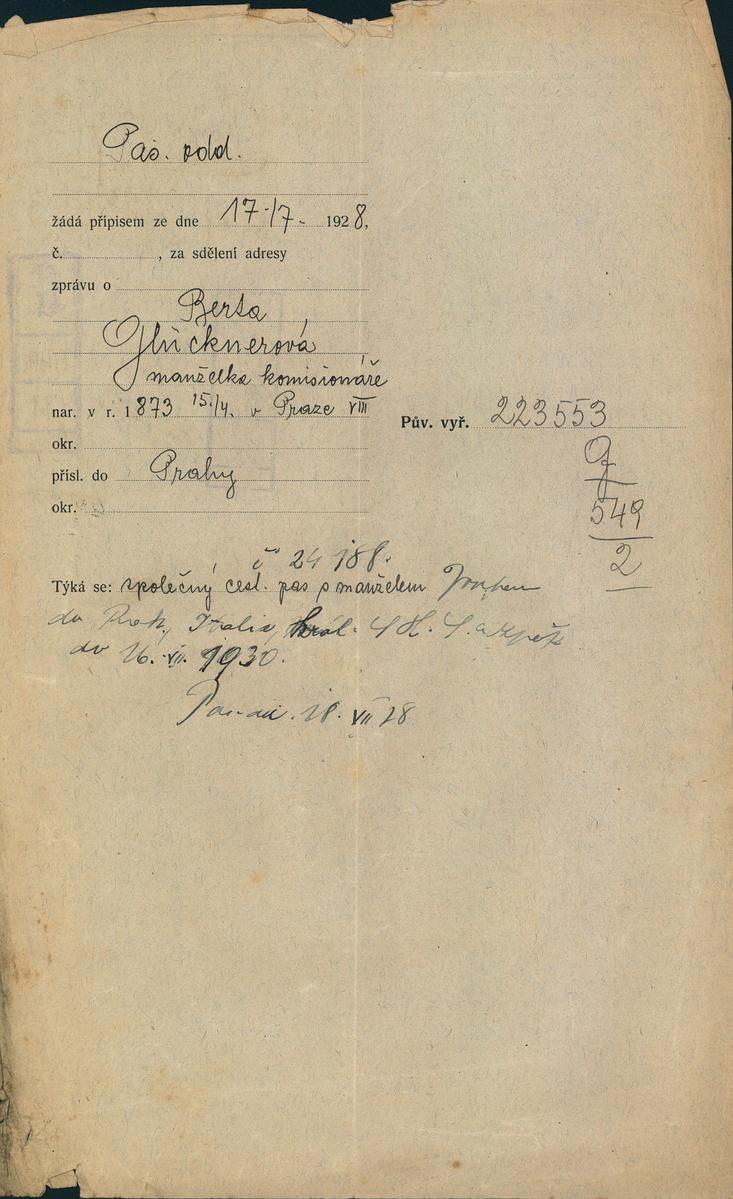 Pas. odd.
žádá přípisem ze dne 17./7. 1928,
č. , za sdělení adresy
zprávu o
Berta
Glücknerová
manželka komisionáře
nar. v r. 1873 15./4. v Praze VIII
Pův. vyř. 223553
okr.
G
přísl. do Prahy
okr.
549
2
č 24 188.
Týká se: společný cest. pas s manželem
do Rak, Italie, král. S H. S. a zpět
do 16. VII. 1930.
18. VII 28